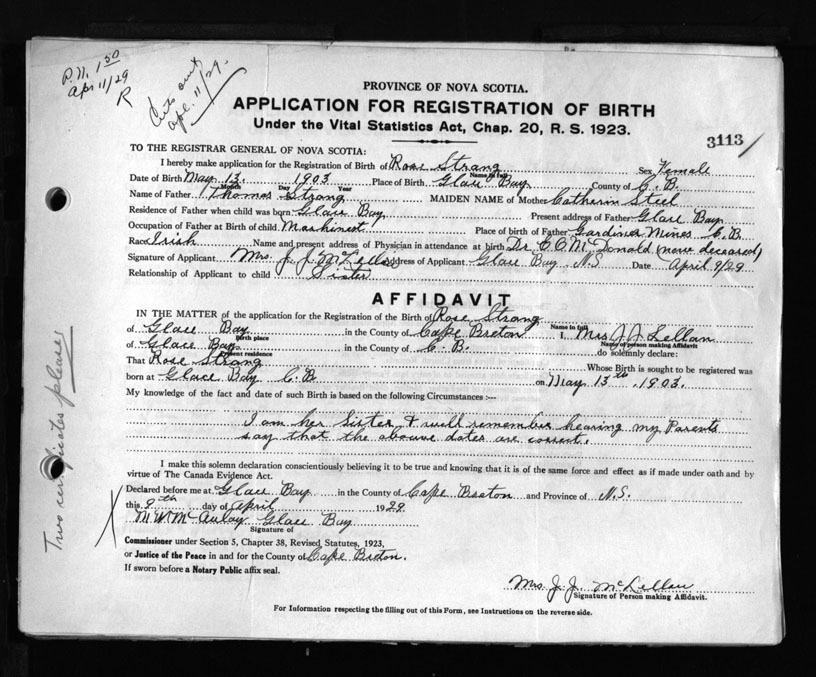 P.N. 1 50
Apr 11/29
R
Certs out
Apl. 11/29.
PROVINCE OF NOVA SCOTIA.
APPLICATION FOR REGISTRATION OF BIRTH
Under the Vital Statistics Act, Chap. 20, R. S. 1923.
3113
TO THE REGISTRAR GENERAL OF NOVA SCOTIA:
I hereby make application for the Registration of Birth of Rose Strang Sex Female
Name in full
Date of Birth May 13 1903 Place of Birth Glace Bay County of C. B.
Month Day Year
Name of Father Thomas Strang MAIDEN NAME of Mother Catherin Steel
Residence of Father when child was born Glace Bay Present address of Father Glace Bay
Occupation of Father at Birth of child Mashinest Place of birth of Father Gardiner Mines C. B.
Race Irish Name and present address of Physician in attendance at birth Dr. McDonald (now deceased)
Signature of Applicant Mrs. J. J. McLellan Address of Applicant Glace Bay N.S Date April 9/29
Relationship of Applicant to child Sister
AFFIDAVIT
IN THE MATTER of the application for the Registration of the Birth of Rose Strang
Name in full
of Glace Bay in the County of Cape Breton I, Mrs J J Lellan
Birth place Name of person making Affidavit
of Glace Bay in the County of C. B. do solemnly declare:
Present residence
That Rose Strang Whose Birth is sought to be registered was
born at Glace Bay C. B on May 13th, 1903.
My knowledge of the fact and date of such Birth is based on the following Circumstances :—
I am her Sister & well remember hearing my Parents
say that the above dates are correct.
I make this solemn declaration conscientiously believing it to be true and knowing that it is of the same force and effect as if made under oath and by
virtue of The Canada Evidence Act.
Declared before me at Glace Bay in the County of Cape Breton and Province of N.S.
this 9th day of April 1929
M. W. McAulay Glace Bay
Signature of
Commissioner under Section 5, Chapter 38, Revised Statutes, 1923,
or Justice of the Peace in and for the County of Cape Breton.
If sworn before a Notary Public affix seal.
Mrs. J. J. McLellan
Signature of Person making Affidavit.
For Information respecting the filling out of this Form, see Instructions on the reverse side.
Two certificates please